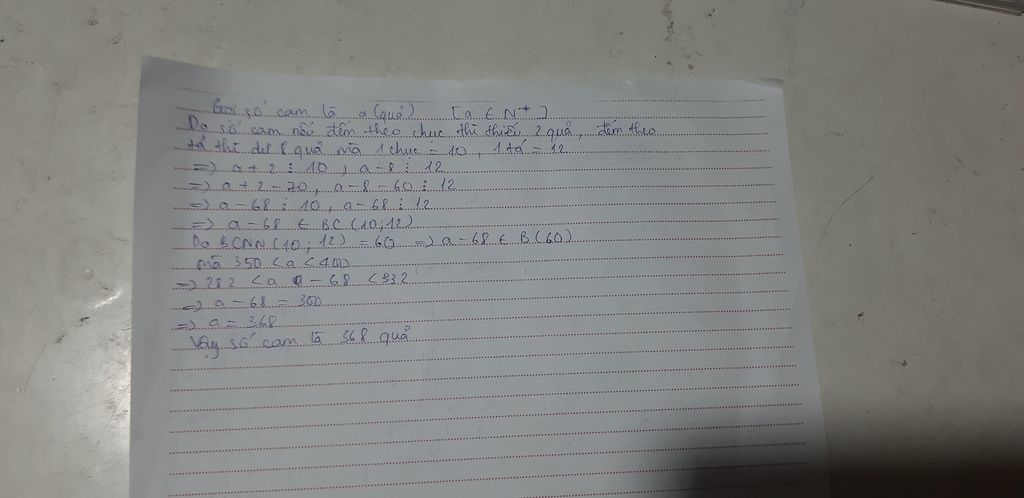 Gọi số cam là a (quả) [a ∈ N*]
Do số cam nói đếm theo chục thì thiếu 2 quả, đếm theo
tá thì dư 8 quả mà 1 chục = 10, 1 tá = 12
=> a + 2 ⋮ 10, a - 8 ⋮ 12
=> a + 2 - 70, a - 8 - 60 ⋮ 12
=> a - 68 ⋮ 10, a - 68 ⋮ 12
=> a - 68 ∈ BC (10; 12)
Do BCNN (10; 12) = 60 => a - 68 ∈ B (60)
mà 350 < a < 400
=> 282 < a - 68 < 332
=> a - 68 = 300
=> a = 368
Vậy số cam là 368 quả